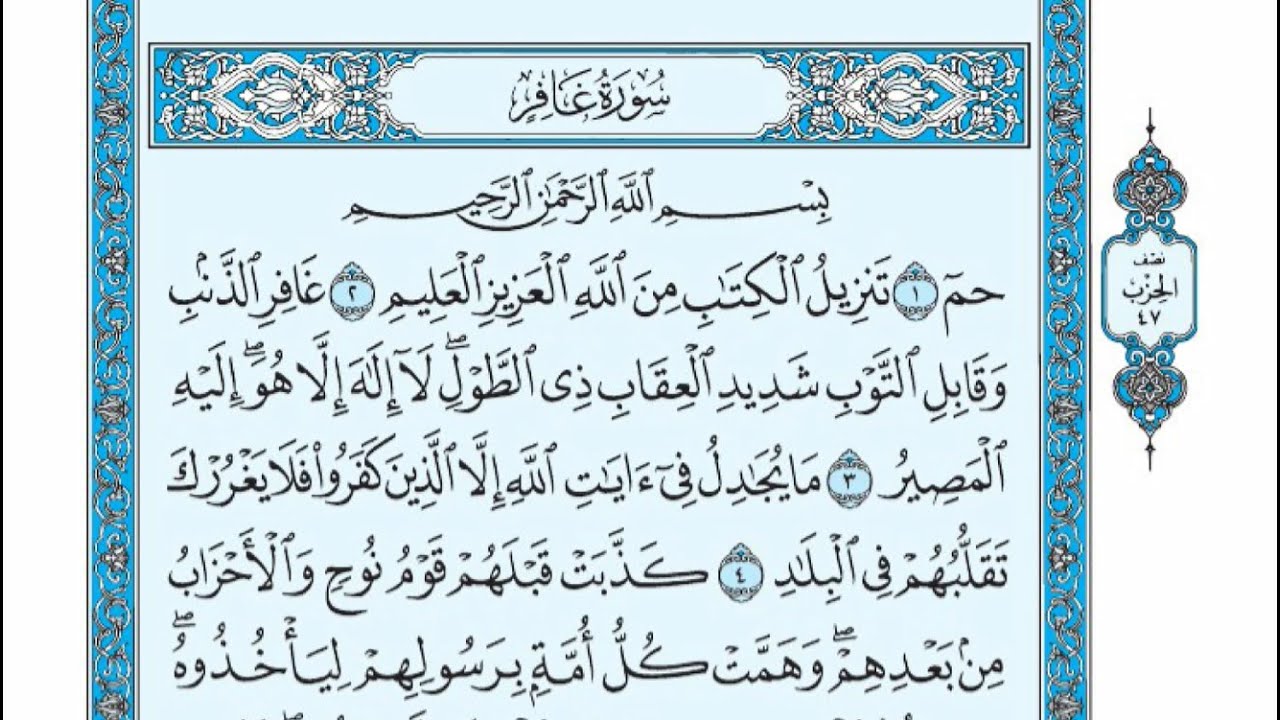 سُورَةُ غَافِرٍ
بِسْمِ ٱللَّهِ ٱلرَّحْمَٰنِ ٱلرَّحِيمِ
حمٓ ١ تَنزِيلُ ٱلْكِتَٰبِ مِنَ ٱللَّهِ ٱلْعَزِيزِ ٱلْعَلِيمِ ٢ غَافِرِ ٱلذَّنۢبِ
وَقَابِلِ ٱلتَّوْبِ شَدِيدِ ٱلْعِقَابِ ذِى ٱلطَّوْلِۖ لَآ إِلَٰهَ إِلَّا هُوَۖ إِلَيْهِ
ٱلْمَصِيرُ ٣ مَا يُجَٰدِلُ فِىٓ ءَايَٰتِ ٱللَّهِ إِلَّا ٱلَّذِينَ كَفَرُوا۟ فَلَا يَغْرُرْكَ
تَقَلُّبُهُمْ فِى ٱلْبِلَٰدِ ٤ كَذَّبَتْ قَبْلَهُمْ قَوْمُ نُوحٍ وَٱلْأَحْزَابُ
مِنۢ بَعْدِهِمْۖ وَهَمَّتْ كُلُّ أُمَّةٍۭ بِرَسُولِهِمْ لِيَأْخُذُوهُۖ
نصف
الحِزْب
٤٧